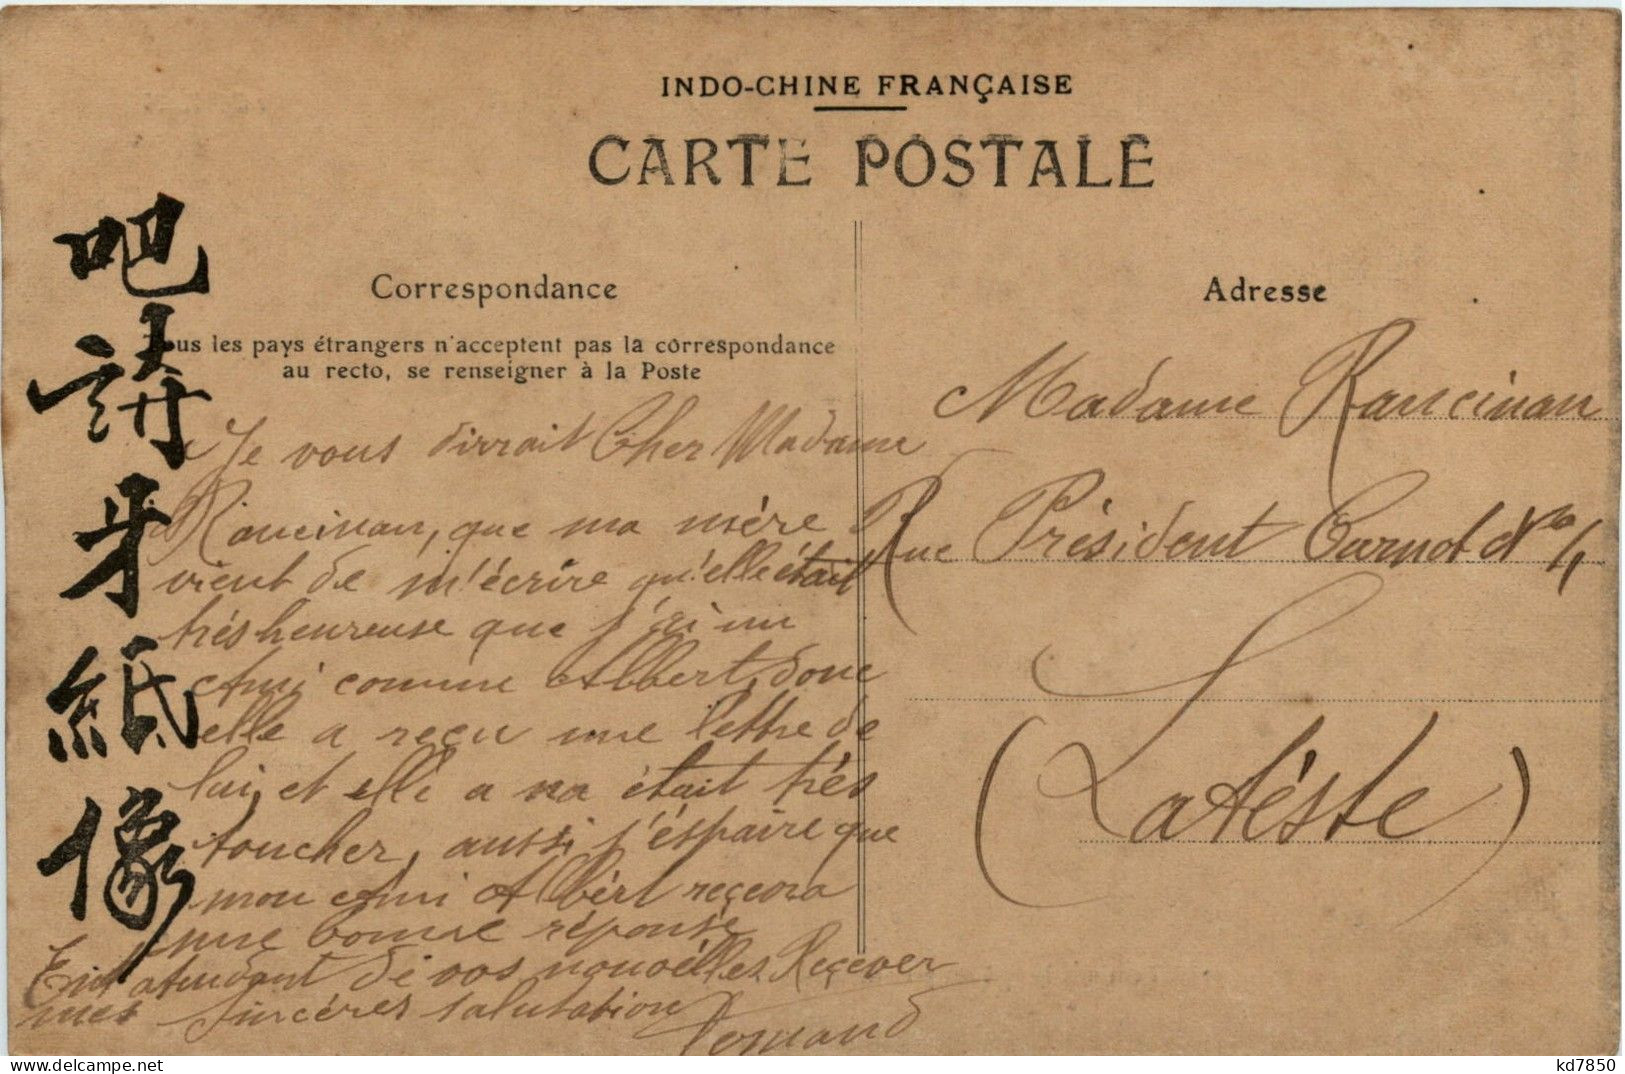 INDO-CHINE FRANÇAISE
CARTE POSTALE
吧
請
牙
紙
像
Correspondance
Tous les pays étrangers n'acceptent pas la correspondance
au recto, se renseigner à la Poste
Je vous dirrait Cher Madame
Rancinan, que ma mére
vient de m'écrire qu'elle était
trés heureuse que j'ai un
Ami comme Albert, donc
elle a reçu une lettre de
lui, et elle a na était trés
toucher, aussi j'éspaire que
mon Ami Albért reçevra
une bonne réponse
En atendant de vos nouvélles Reçever
mes sincéres salutation
Fernand
Adresse
Madame Rancinan
Rue Président Carnot No
Latéste
kd7850